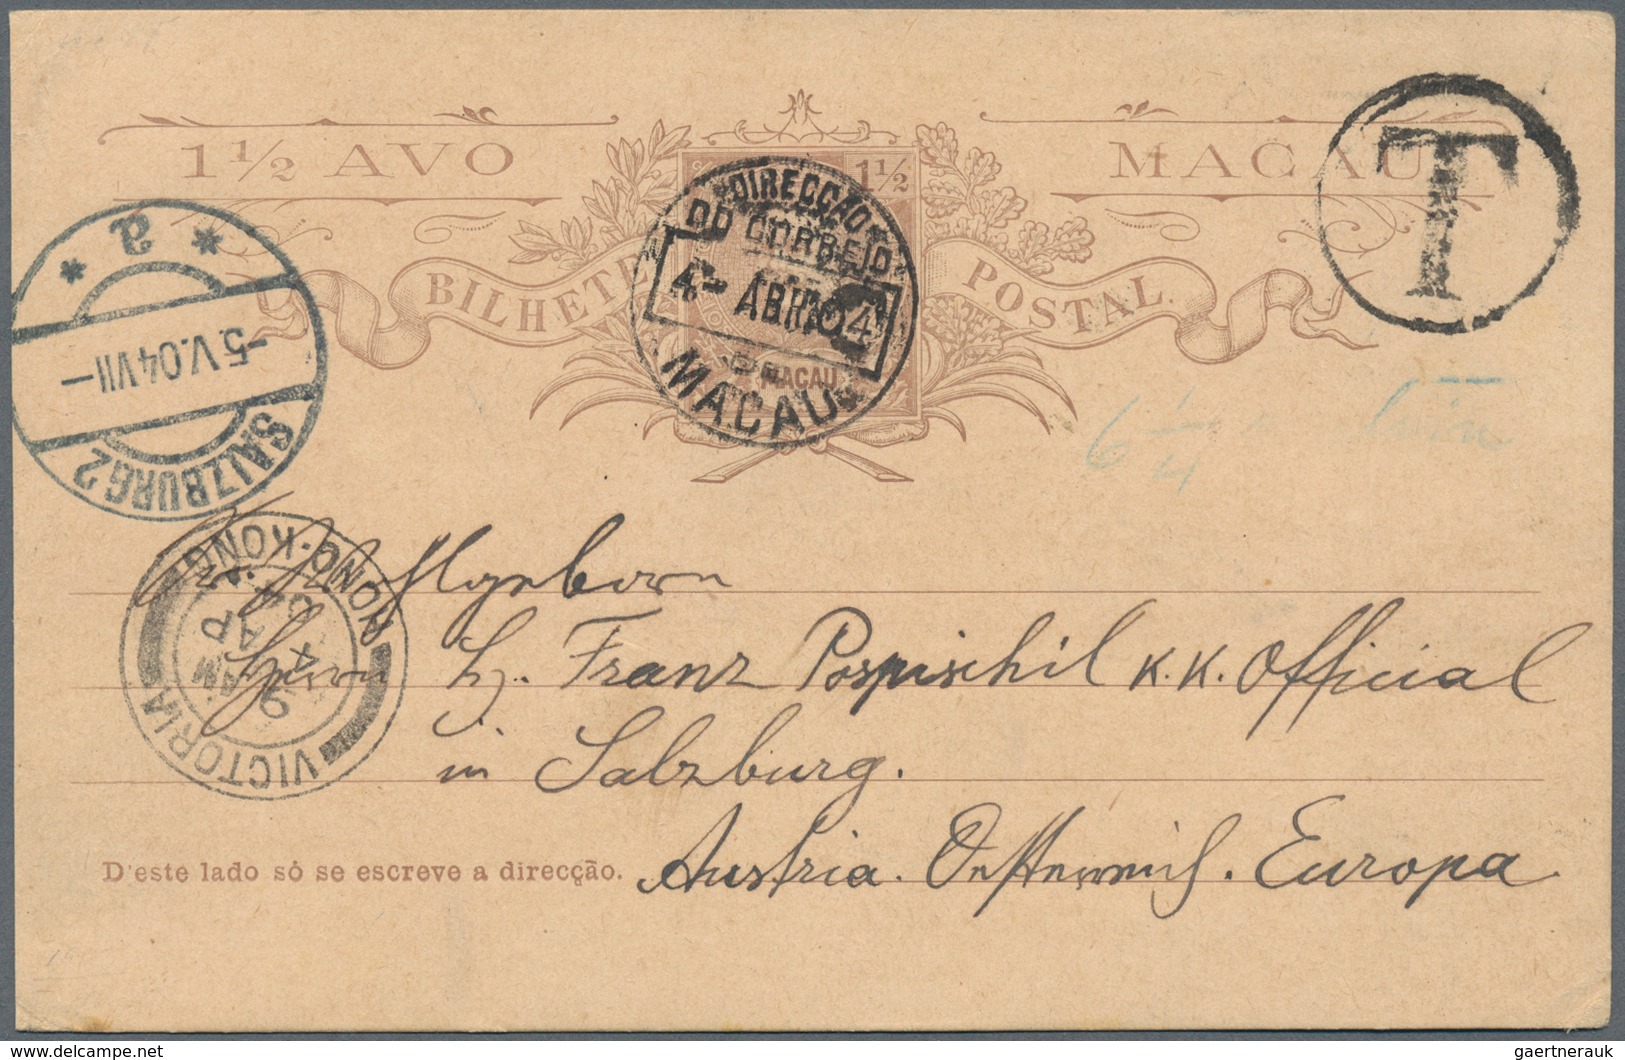 1 1/2 AVO
MACAU
1 1/2
BILHETE POSTAL.
MACAU
DIRECÇÃO
DO CORREIO
4- ABR. 04
MACAU
T
a
-5.V.04 VII-
SALZBURG 2
6 1/4
HONG-KONG
9 AM
AP
VICTORIA
Hgeborn
Herrn H. Franz Pospischil K.K. Official
in Salzburg.
D'este lado só se escreve a direcção.
Austria. Oesterreich. Europa
gaertnerauk